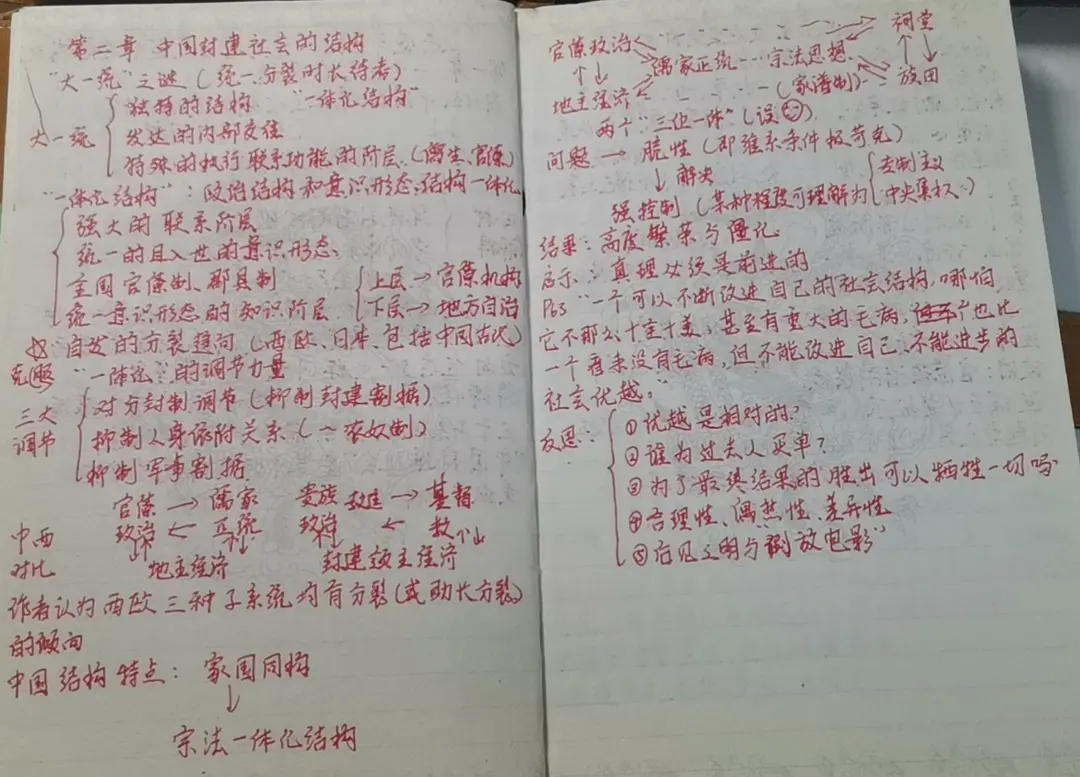 第二章 中国封建社会的结构
"大一统"之谜(统一、分裂时长待考)
大一统
独特的结构 "一体化结构"
发达的内部交往
特殊的执行联系功能的阶层(儒生、官僚)
"一体化结构":政治结构和意识形态结构一体化
强大的联系阶层
统一的且入世的意识形态
全国官僚制、郡县制
统一意识形态的知识阶层
上层→官僚机构
下层→地方自治
自发的分裂趋向(西欧、日本、包括中国古代)
克服 "一体化"的调节力量
三大调节
对分封制调节(抑制封建割据)
抑制人身依附关系(~农奴制)
抑制军事割据
中西对比
官僚政治 → ← 儒家正统
地主经济
贵族政治 教廷 → ← 基督教
封建领主经济
作者认为西欧三种子系统均有分裂(或助长分裂)
的倾向
中国结构特点:家国同构
↓
宗法一体化结构
官僚政治 儒家正统…宗法思想 祠堂
地主经济 (家谱制) 族田
两个"三位一体"(误)
问题→脆性(即维系条件极苛克)
↓解决
强控制(某种程度可理解为 专制主义 中央集权)
结果:高度繁荣与僵化
启示:真理必须是前进的
P63 "一个可以不断改进自己的社会结构,哪怕
它不那么十全十美,甚至有重大的毛病,也比
一个看来没有毛病,但不能改进自己、不能进步的
社会优越。"
反思:
①优越是相对的?
②谁为过去人买单?
③为了最终结果的胜出可以牺牲一切吗
④合理性、偶然性、差异性
⑤后见之明与"倒放电影"